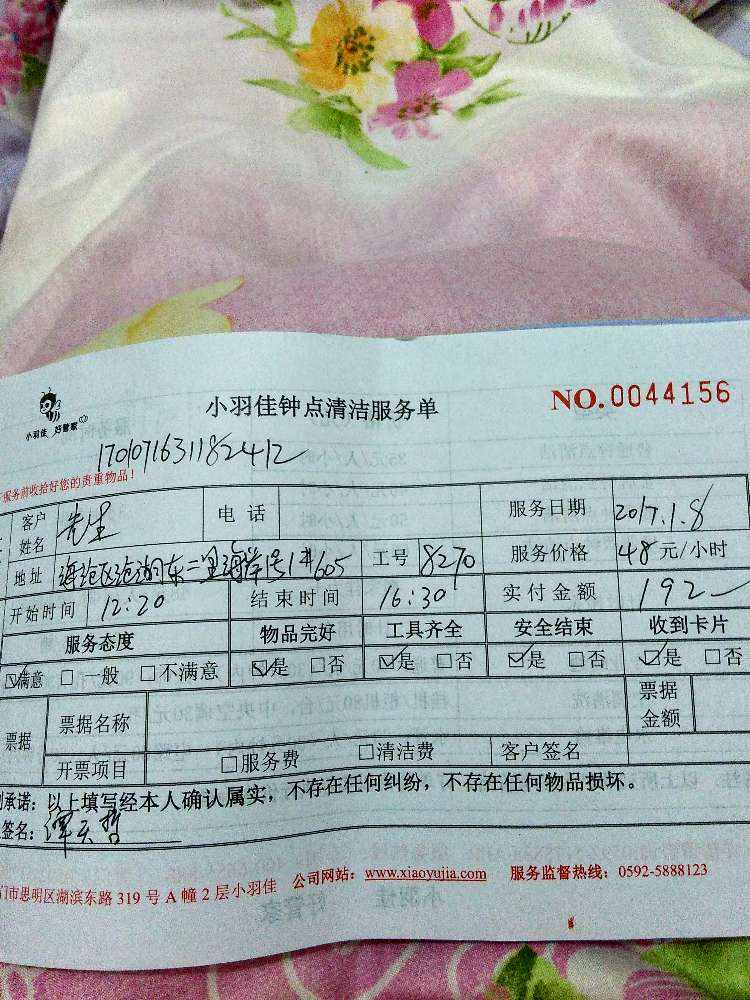 小羽佳 好管家
小羽佳钟点清洁服务单
NO.0044156
1701071631182412
服务前收拾好您的贵重物品！
客户姓名 先生 电话 服务日期 2017.1.8
地址 海沧区沧湖东二里海岸1#605 工号 8270 服务价格 48元/小时
开始时间 12:20 结束时间 16:30 实付金额 192
服务态度 物品完好 工具齐全 安全结束 收到卡片
☑满意 □一般 □不满意 ☑是 □否 ☑是 □否 ☑是 □否 ☑是 □否
票据 票据名称 票据金额
开票项目 □服务费 □清洁费 客户签名
承诺：以上填写经本人确认属实，不存在任何纠纷，不存在任何物品损坏。
签名：谭天哲
门市思明区湖滨东路319号A幢2层小羽佳 公司网站：www.xiaoyujia.com 服务监督热线：0592-5888123